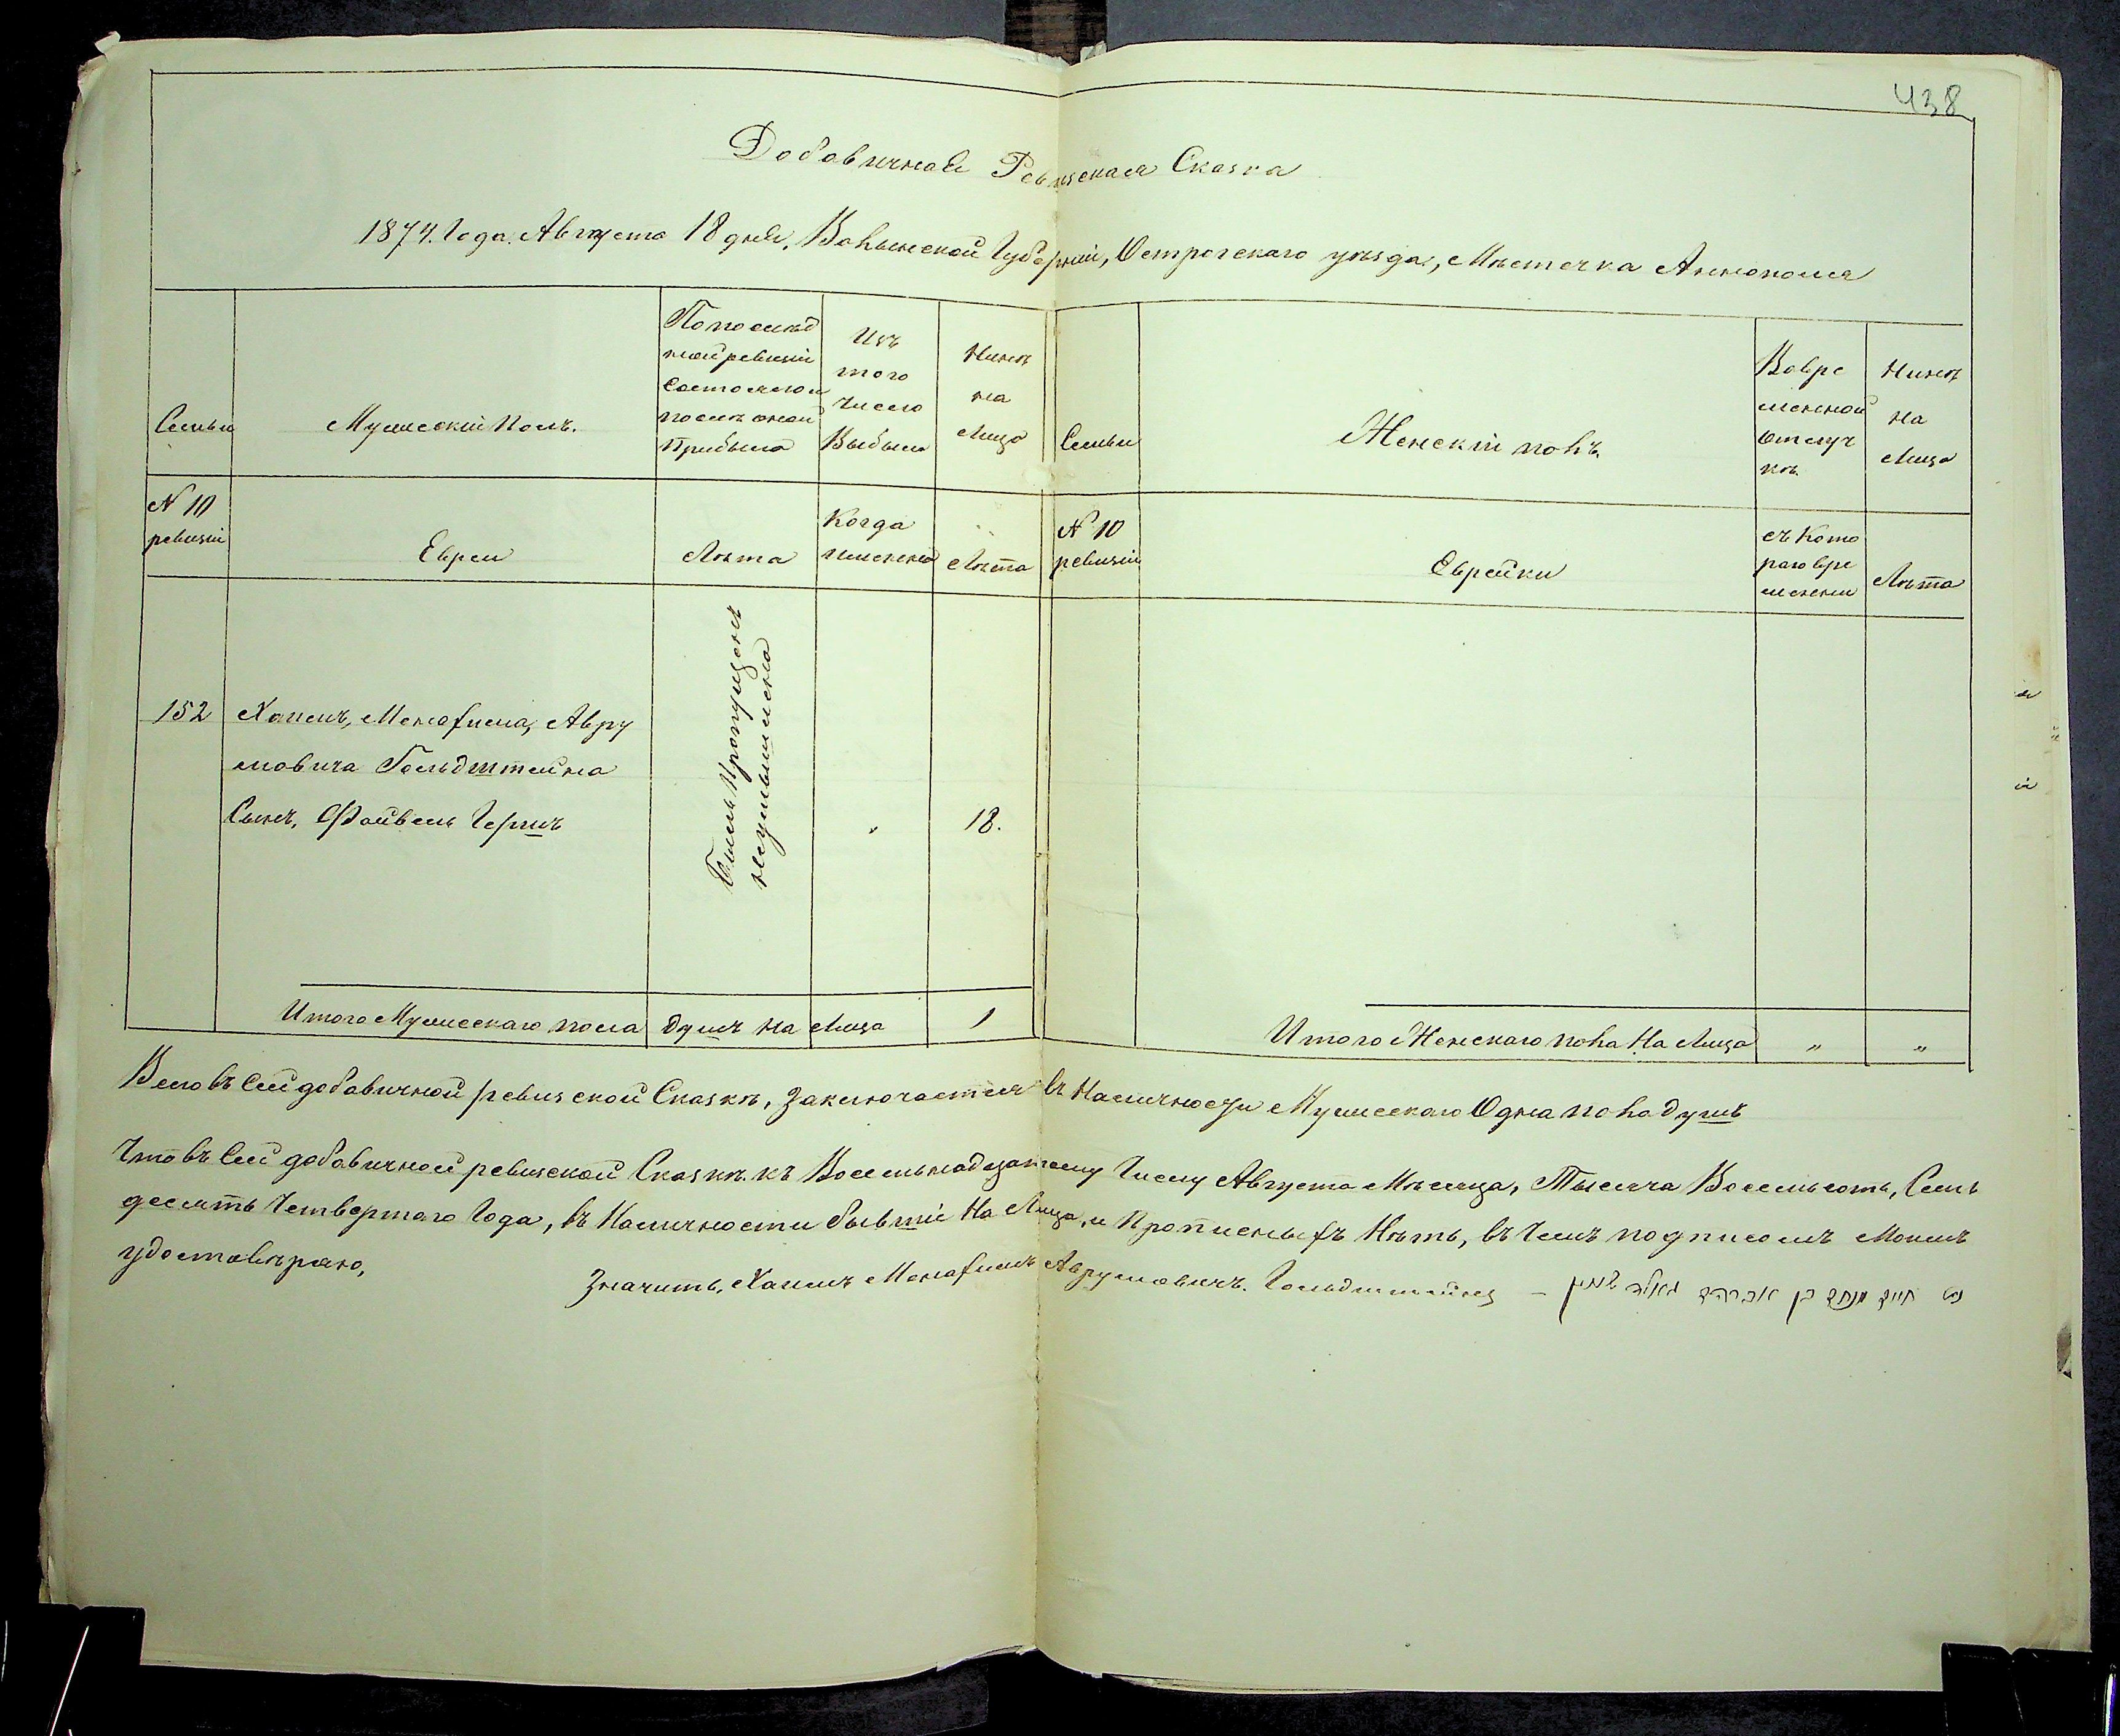 438
Добавичная Ревизская Сказка
1874. Года. Августа 18 дня, Волынской Губерніи, Острогскаго уѣзда, Мѣстечка Аннополя
Семьи
Мужескій Полъ.
По послѣд
ней ревизіи
Состояло и
послѣ оной
Прибыло
Изъ
того
Число
Выбыло
Нинѣ
на
Лицо
Семьи
Женскій полъ.
Вовре
менной
Отлуч
кѣ
Нинѣ
На
Лицо
№ 10
ревизіи
Евреи
Лѣта
Когда
именно
Лѣта
№ 10
ревизіи
Еврейки
съ Кото
раго вре
мени
Лѣта
152
Хаимъ, Менахима, Авру
мовича Гольдштейна
Сынъ, Файвель Гершъ
Былъ Пропущенъ
неумышленно
"
18.
Итого Мужескаго пола душъ на Лицо
1
Итого Женскаго пола На Лицо
"
"
Всего въ Сей добавичной ревизской Сказкѣ, Заключается въ Наличности Мужескаго Одна пола душъ
Что въ Сей добавичной ревизской Сказкѣ къ Восемьнадцатому Числу Августа Мѣсяца, Тысяча Восемьсотъ, Семь
десятъ Четвертаго Года, въ Наличности бывшіе На Лицо, и Прописныхъ Нѣтъ, въ Чемъ подписомъ Моимъ
удостовѣряю,
Значитъ, Хаимъ Менахимъ Аврумовичъ. Гольдштейнъ – חיים מנחם בן אברהם גאלדשטיין